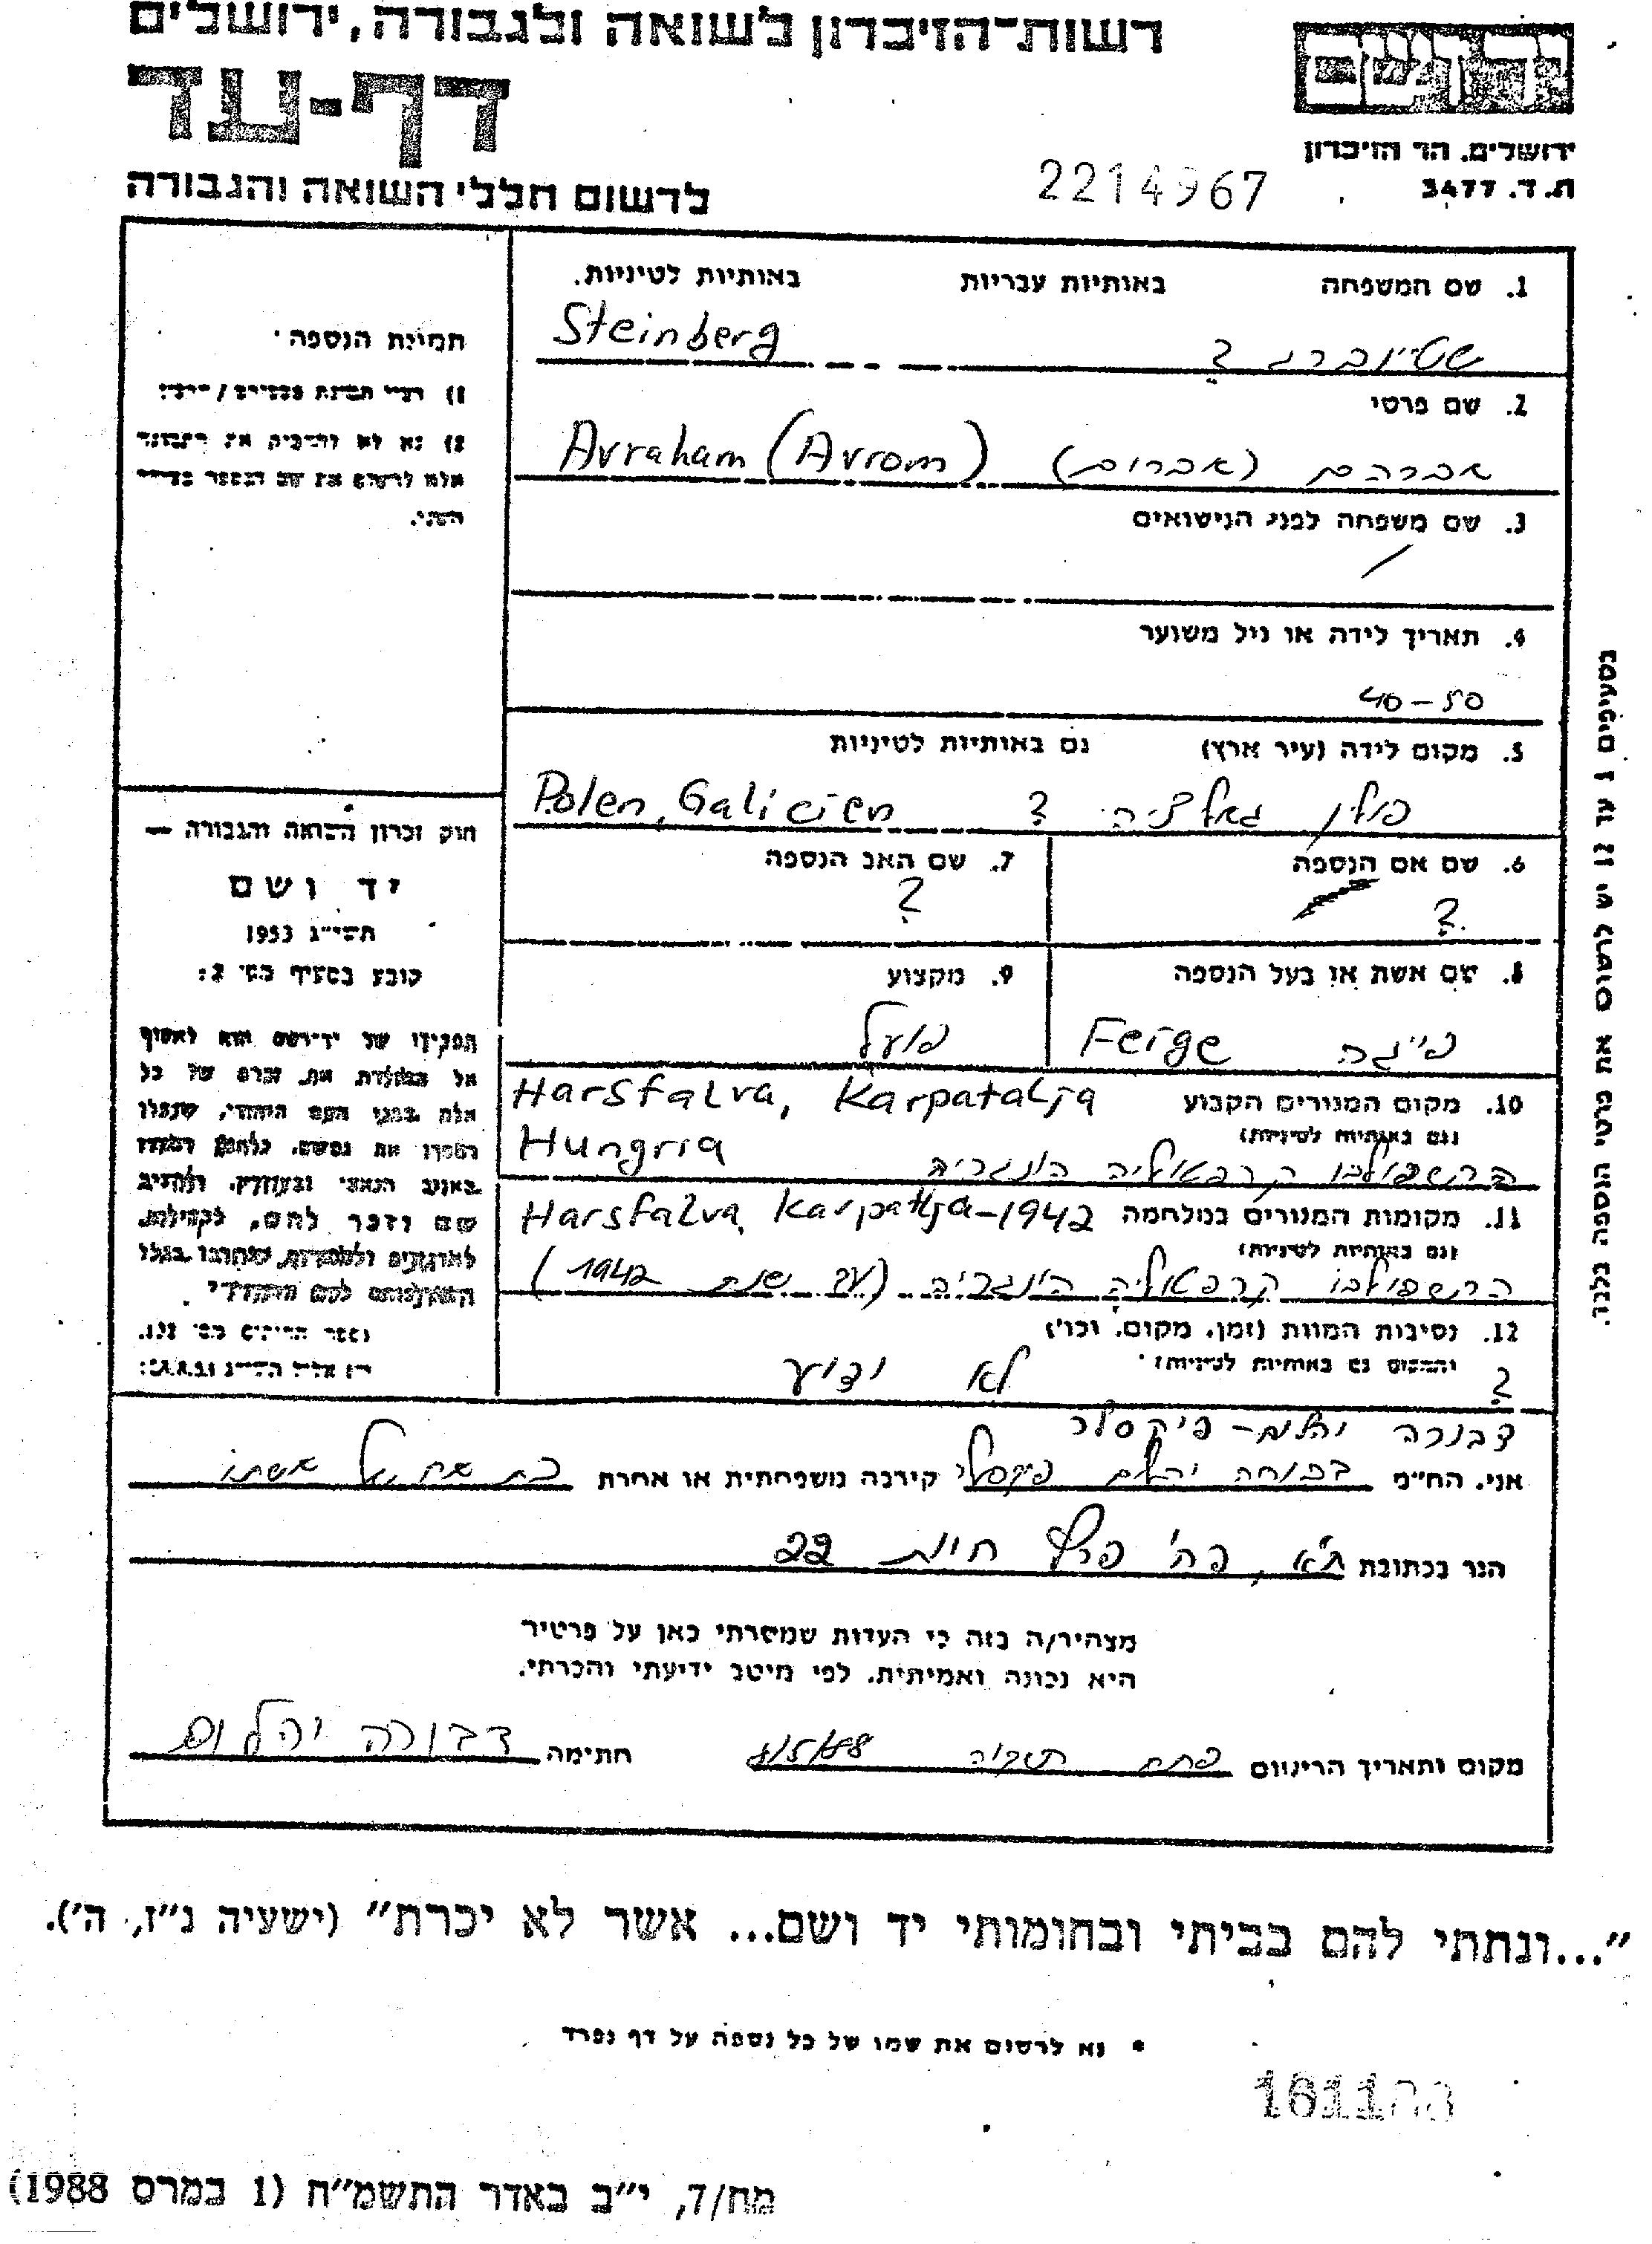 רשות־הזיכרון לשואה ולגבורה, ירושלים
דף-עד
לרשום חללי השואה והגבורה
ירושלים. הר הזיכרון
ת.ד. 3477
2214967
1. שם המשפחה באותיות עבריות באותיות לטיניות.
Steinberg
שטיינברג ?
2. שם פרטי
Avraham (Avrom) אברהם (אברום)
3. שם משפחה לפני הנישואים
/
4. תאריך לידה או גיל משוער
40-50
5. מקום לידה (עיר ארץ) גם באותיות לטיניות
Polen, Galicien פולין גאליציה ?
6. שם אם הנספה
?
7. שם האב הנספה
?
8. שם אשת או בעל הנספה
פייגה Feige
9. מקצוע
פועל
10. מקום המגורים הקבוע
(גם באותיות לטיניות)
Harsfalva, Karpatalja
Hungria
הרשפולבו קרפטליה הונגריה
11. מקומות המגורים במלחמה Harsfalva, Karpatlja-1942
(גם באותיות לטיניות)
הרשפולבו קרפטליה הונגריה (עד שנת 1942)
12. נסיבות המוות (זמן, מקום, וכו')
(המקום גם באותיות לטיניות)
? לא ידוע
תמונת הנספה
חוק זכרון השואה והגבורה —
יד ושם
תשי״ג 1953
קובע בסעיף מס' 2:
תפקידו של יד־ושם הוא לאסוף
אל המולדת את זכרם של כל
אלה מבני העם היהודי, שנפלו
ומסרו את נפשם, נלחמו ומרדו
באויב הנאצי ובעוזריו, ולהציב
שם וזכר להם, לקהילות,
לארגונים ולמוסדות, שנחרבו בגלל
השתייכותם לעם היהודי
דבורה יהלום-פיקסלר
אני, הח״מ דבורה יהלום פיקסלר קירבה משפחתית או אחרת בת אח של אשתו
הגר בכתובת ת״א, רח' פרץ חיות 22
מצהיר/ה בזה כי העדות שמסרתי כאן על פרטיה
היא נכונה ואמיתית, לפי מיטב ידיעתי והכרתי.
מקום ותאריך הרישום פתח תקוה 8/5/88 חתימה דבורה יהלום
"...ונתתי להם בביתי ובחומותי יד ושם... אשר לא יכרת" (ישעיה נ״ו, ה').
* נא לרשום את שמו של כל נספה על דף נפרד
מח/ד, י״ב באדר התשמ״ח (1 במרס 1988)